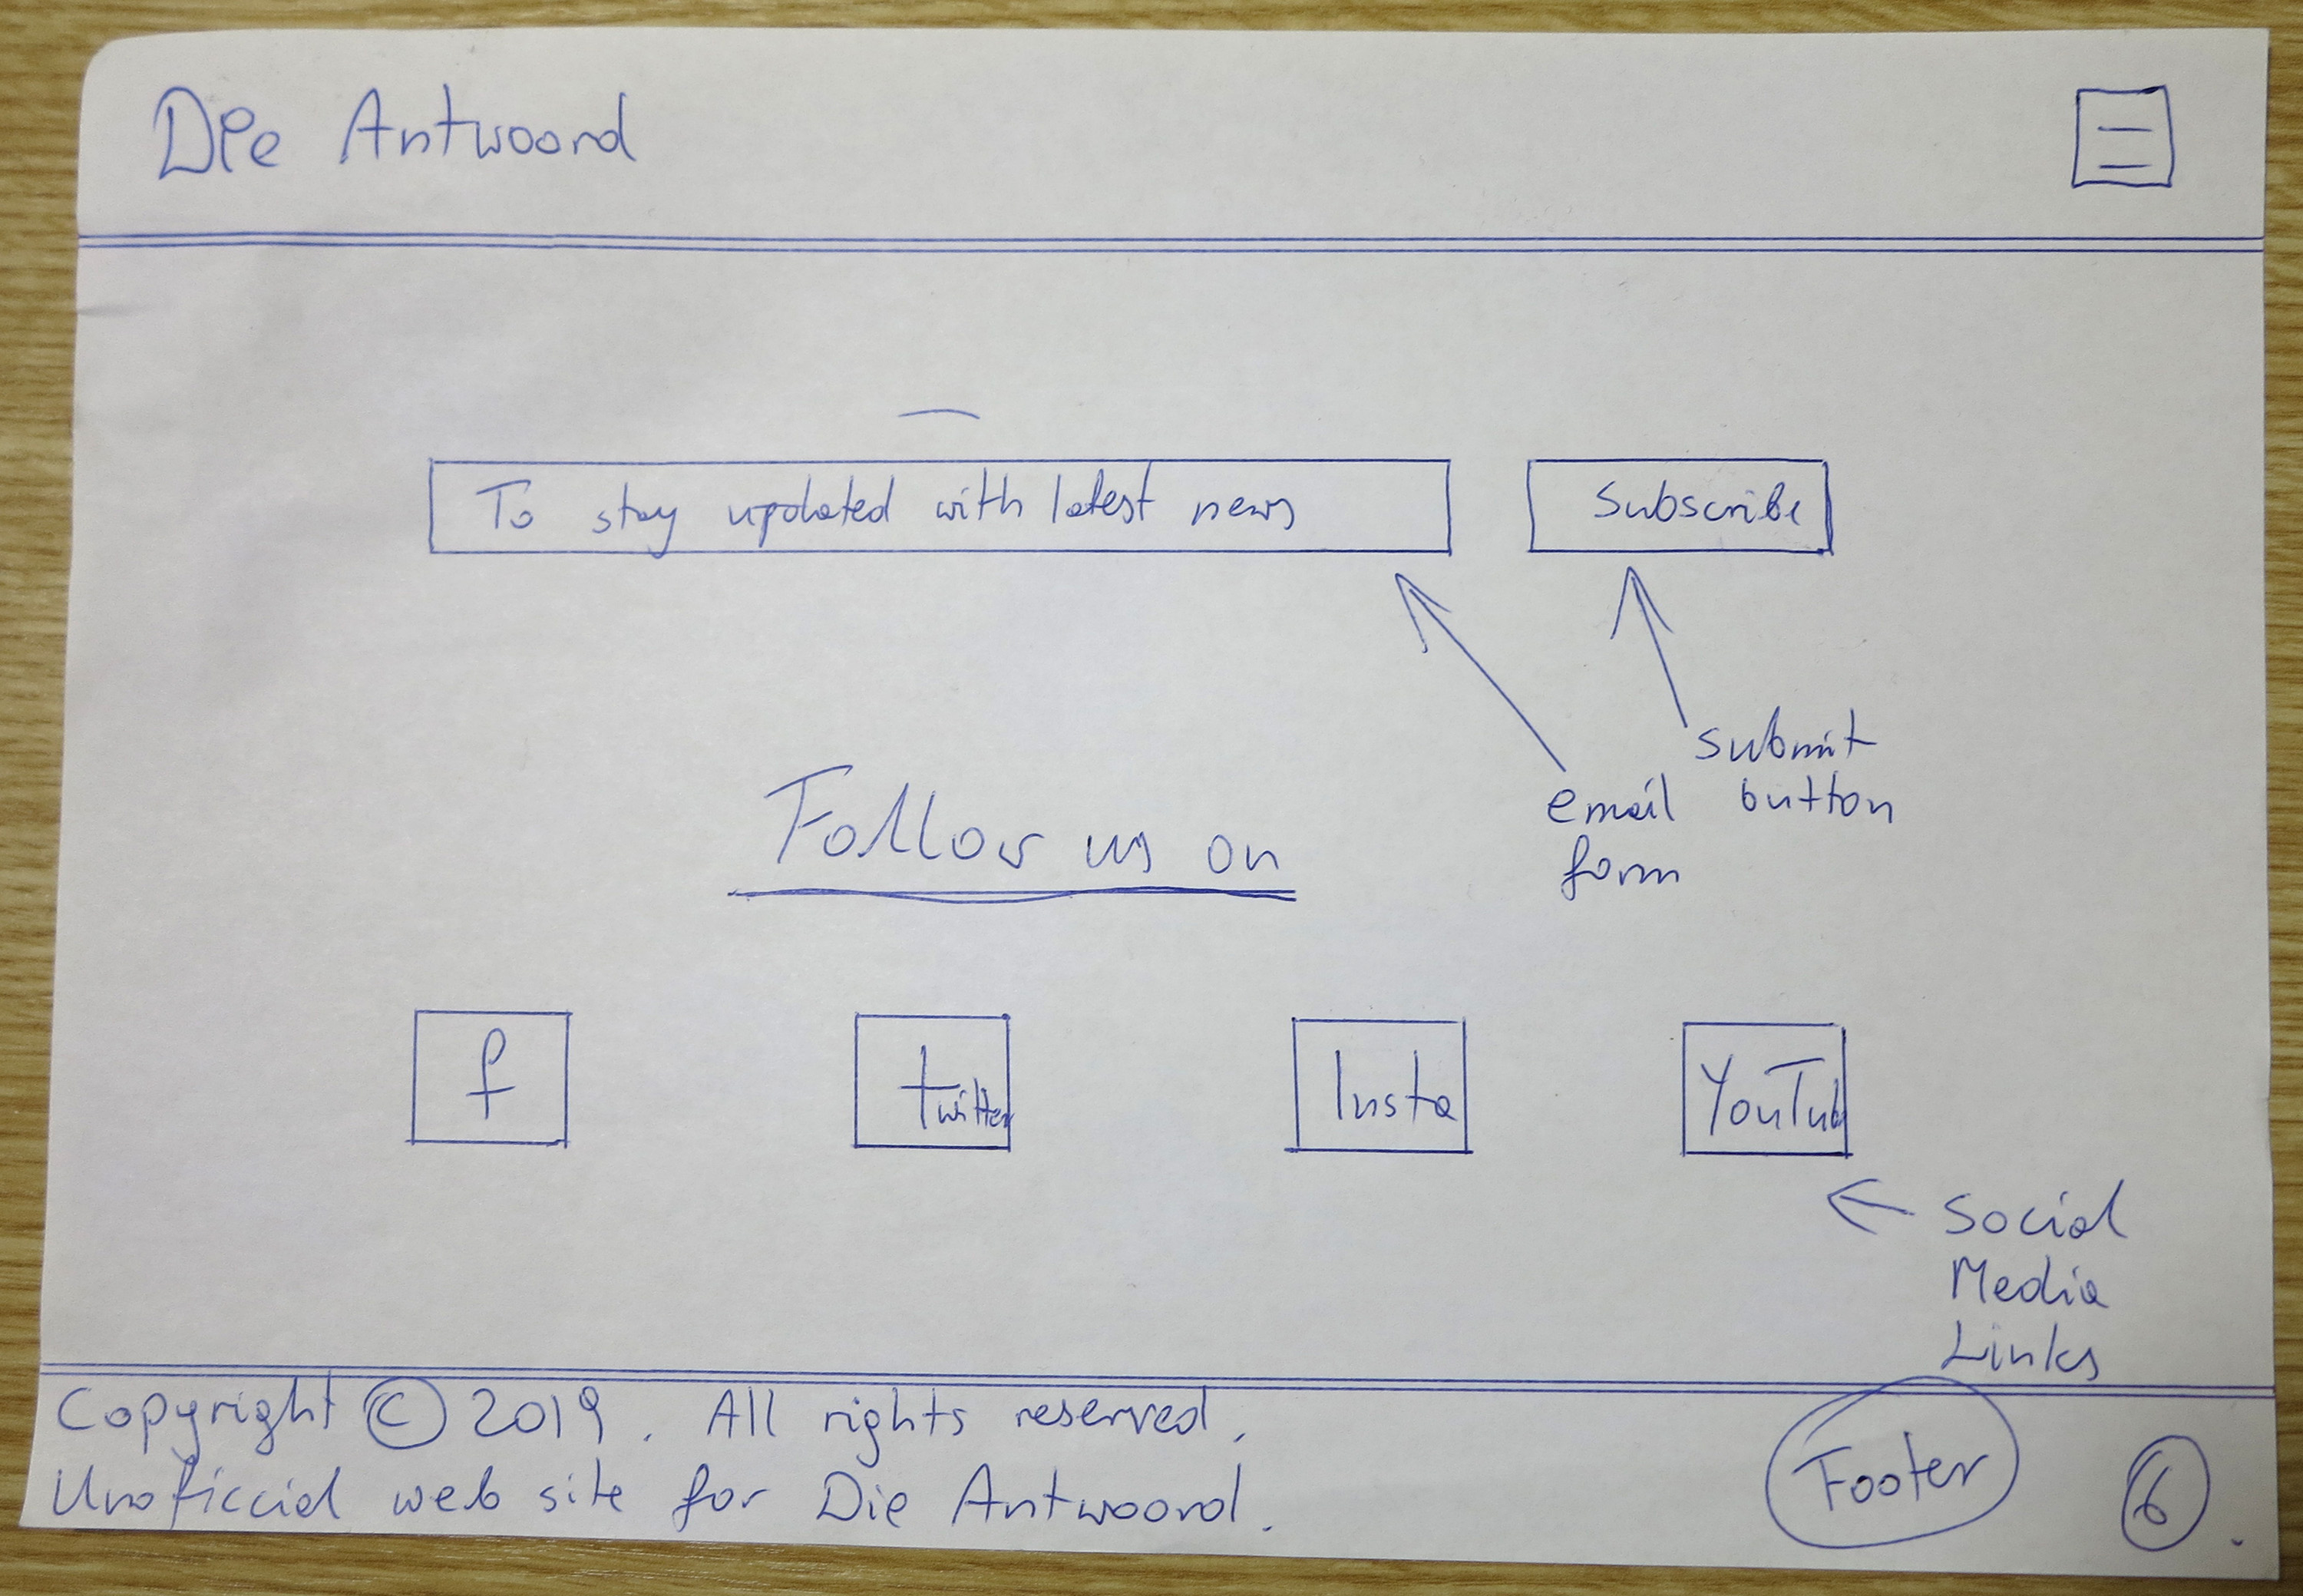 Die Antwoord
To stay updated with latest news
Subscribe
submit
button
email
form
Follow us on
f
twitter
Insta
YouTub
Social
Media
Links
Copyright © 2019. All rights reserved.
Unoficcial web site for Die Antwoord.
Footer
6